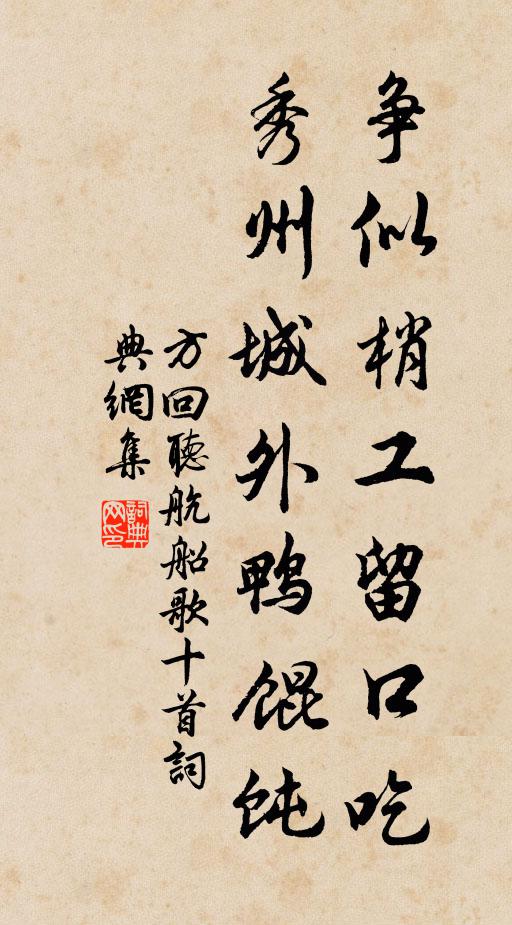 争似梢工留口吃
秀州城外鸭馄饨
方回聽航船歌十首詞
典網集
詞典网印